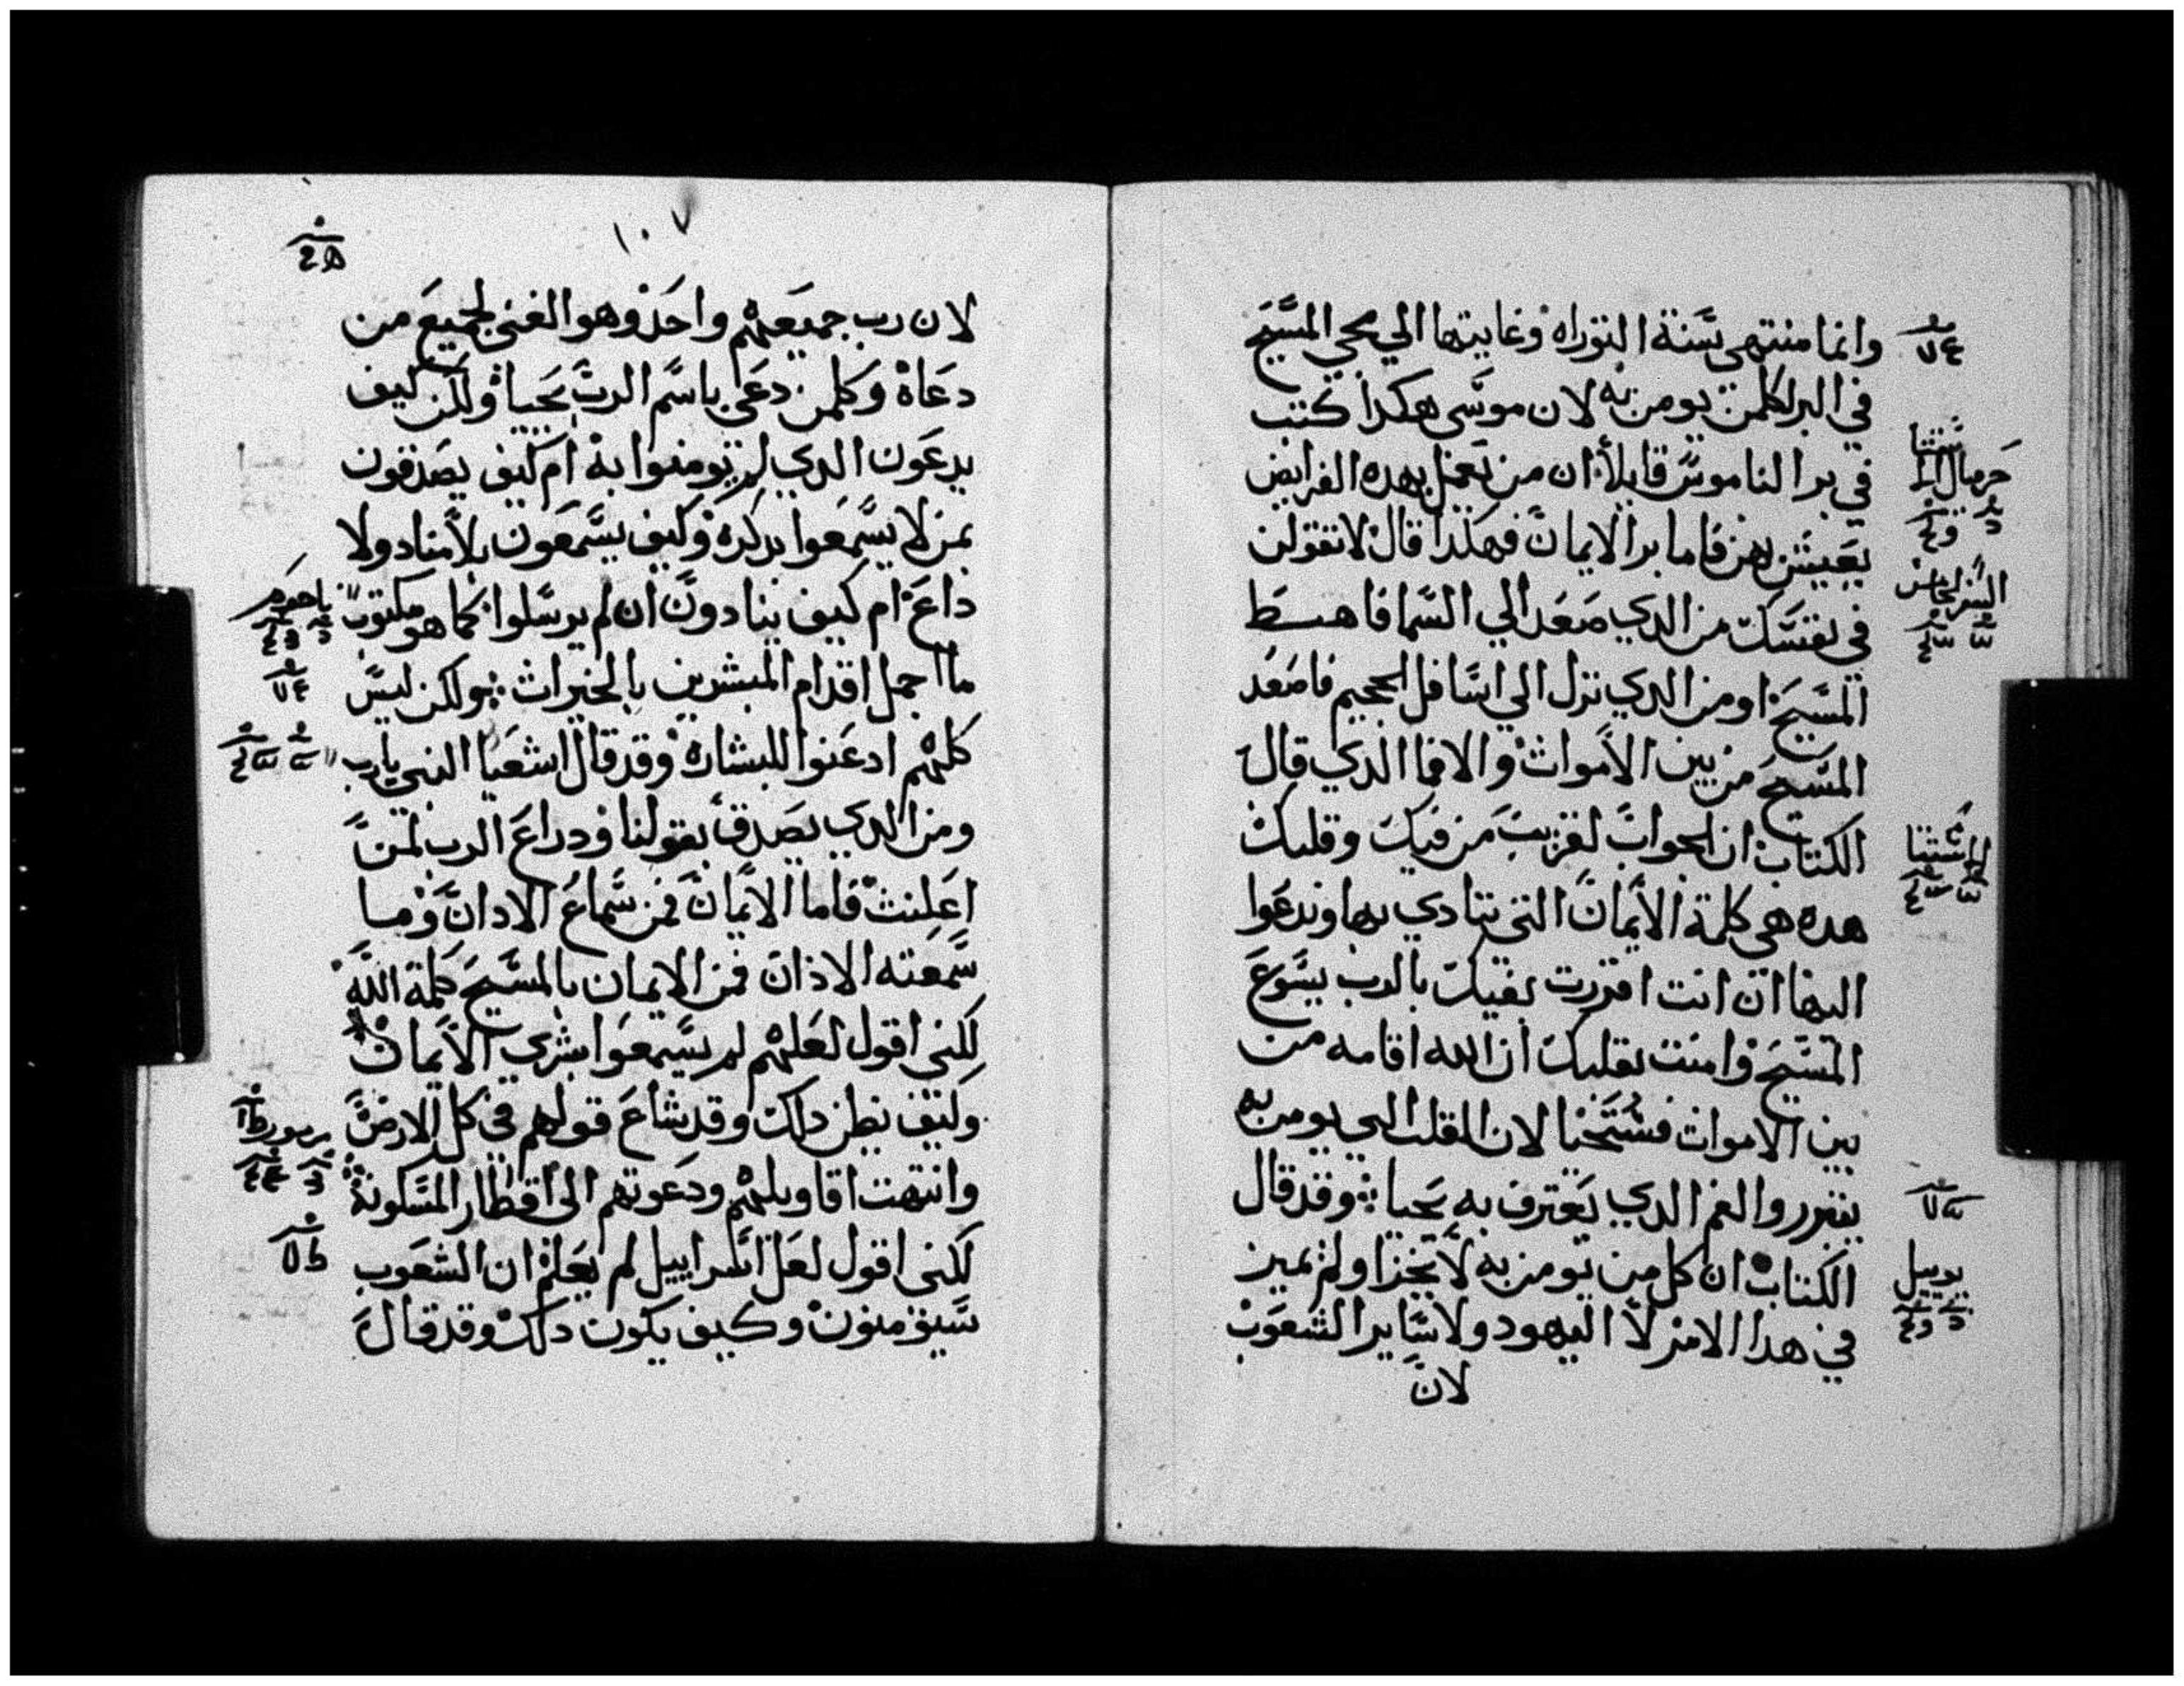 وانما منتهى سنة التوراه وغايتها الي مجي المسيح
في البر لكلمن يومن به لان موسى هكدا كتب
في بر الناموس قايلاً ان من يعمل بهده الفرايض
يعيش بهن فاما بر الايمان فهكدا قال لا تقولن
في نفسك من الدي صعد الي السما فاهبط
المسيح او من الدي نزل الي اسافل الجحيم فاصعد
المسيح من بين الاموات والا فما الدي قال
الكتاب ان الجواب لقريب من فيك وقلبك
هده هي كلمة الايمان التي ننادي بها وندعوا
اليها ان انت اقررت بفيك بالرب يسوع
المسيح وامنت بقلبك ان الله اقامه من
بين الاموات فستحيا لان القلب الدي يومن به
يتبرر والفم الدي يعترف به يحيا وقد قال
الكتاب ان كل من يومن به لا يخزا ولم يميز
في هدا الامر لا اليهود ولا ساير الشعوب
لان
يوييل
١٠٧
لان رب جميعهم واحد وهو الغنى لجميع من
دعاه وكلمن دعى باسم الرب يحيا ولكن كيف
يدعون الدي لم يومنوا به ام كيف يصدقون
بمن لا يسمعوا بدكره وكيف يسمعون بلا مناد ولا
داع ام كيف ينادون ان لم يرسلوا كما هو مكتوب
ما اجمل اقدام المبشرين بالخيرات ولكن ليس
كلهم ادعنوا للبشاره وقد قال اشعيا النبي يا رب
ومن الدي يصدق بقولنا ودراع الرب لمن
اعلنت فاما الايمان فمن سماع الادان وما
سمعته الاذان فمن الايمان بالمسيح كلمة الله
لكني اقول لعلهم لم يسمعوا بشري الايمان
وكيف يظن دلك وقد شاع قولهم في كل الارض
وانتهت اقاويلهم ودعوتهم الى اقطار المسكونة
لكني اقول لعل اسراييل لم يعلم ان الشعوب
سيومنون وكيف يكون دلك وقد قال